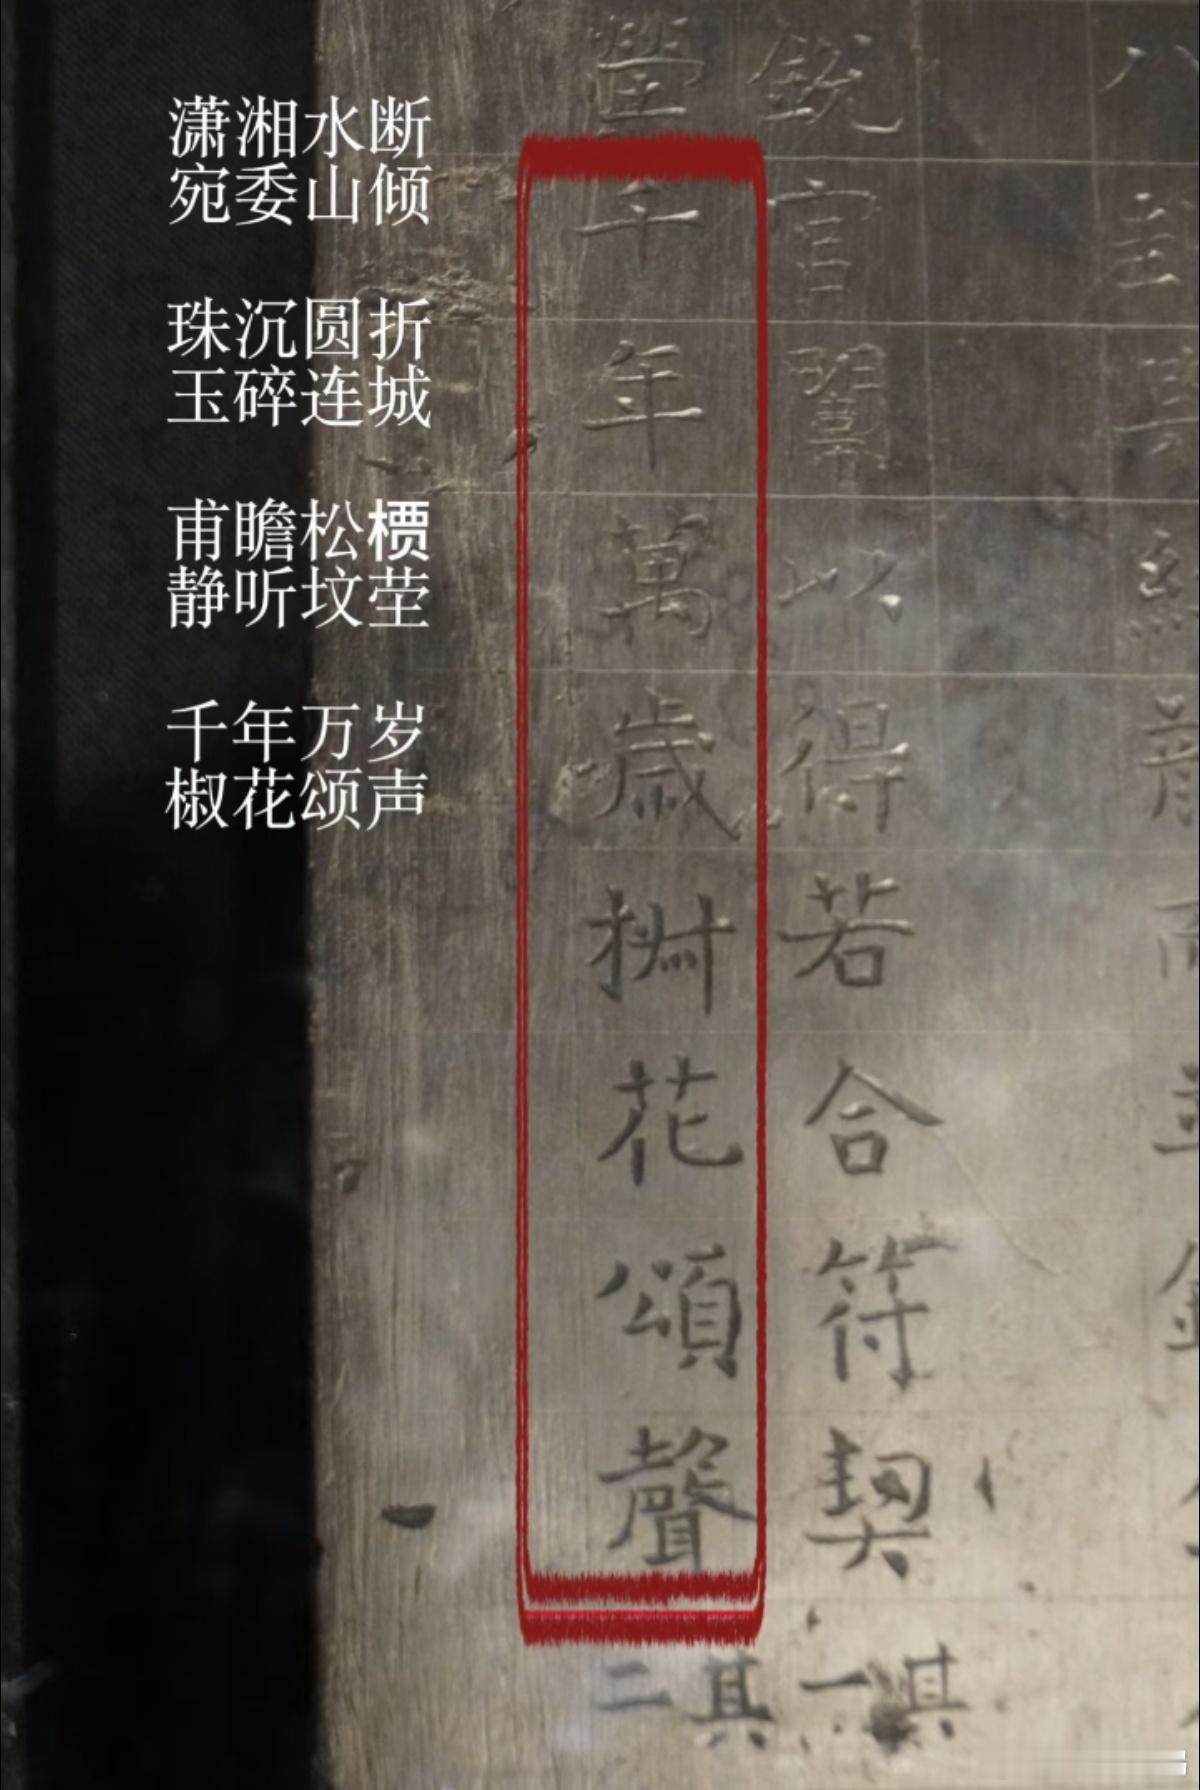 潇湘水断
宛委山倾
珠沉圆折
玉碎连城
甫瞻松槚
静听坟茔
千年万岁
椒花颂声
銳官闈以得若合符契
其一
塋千年萬歲椒花頌聲
其二